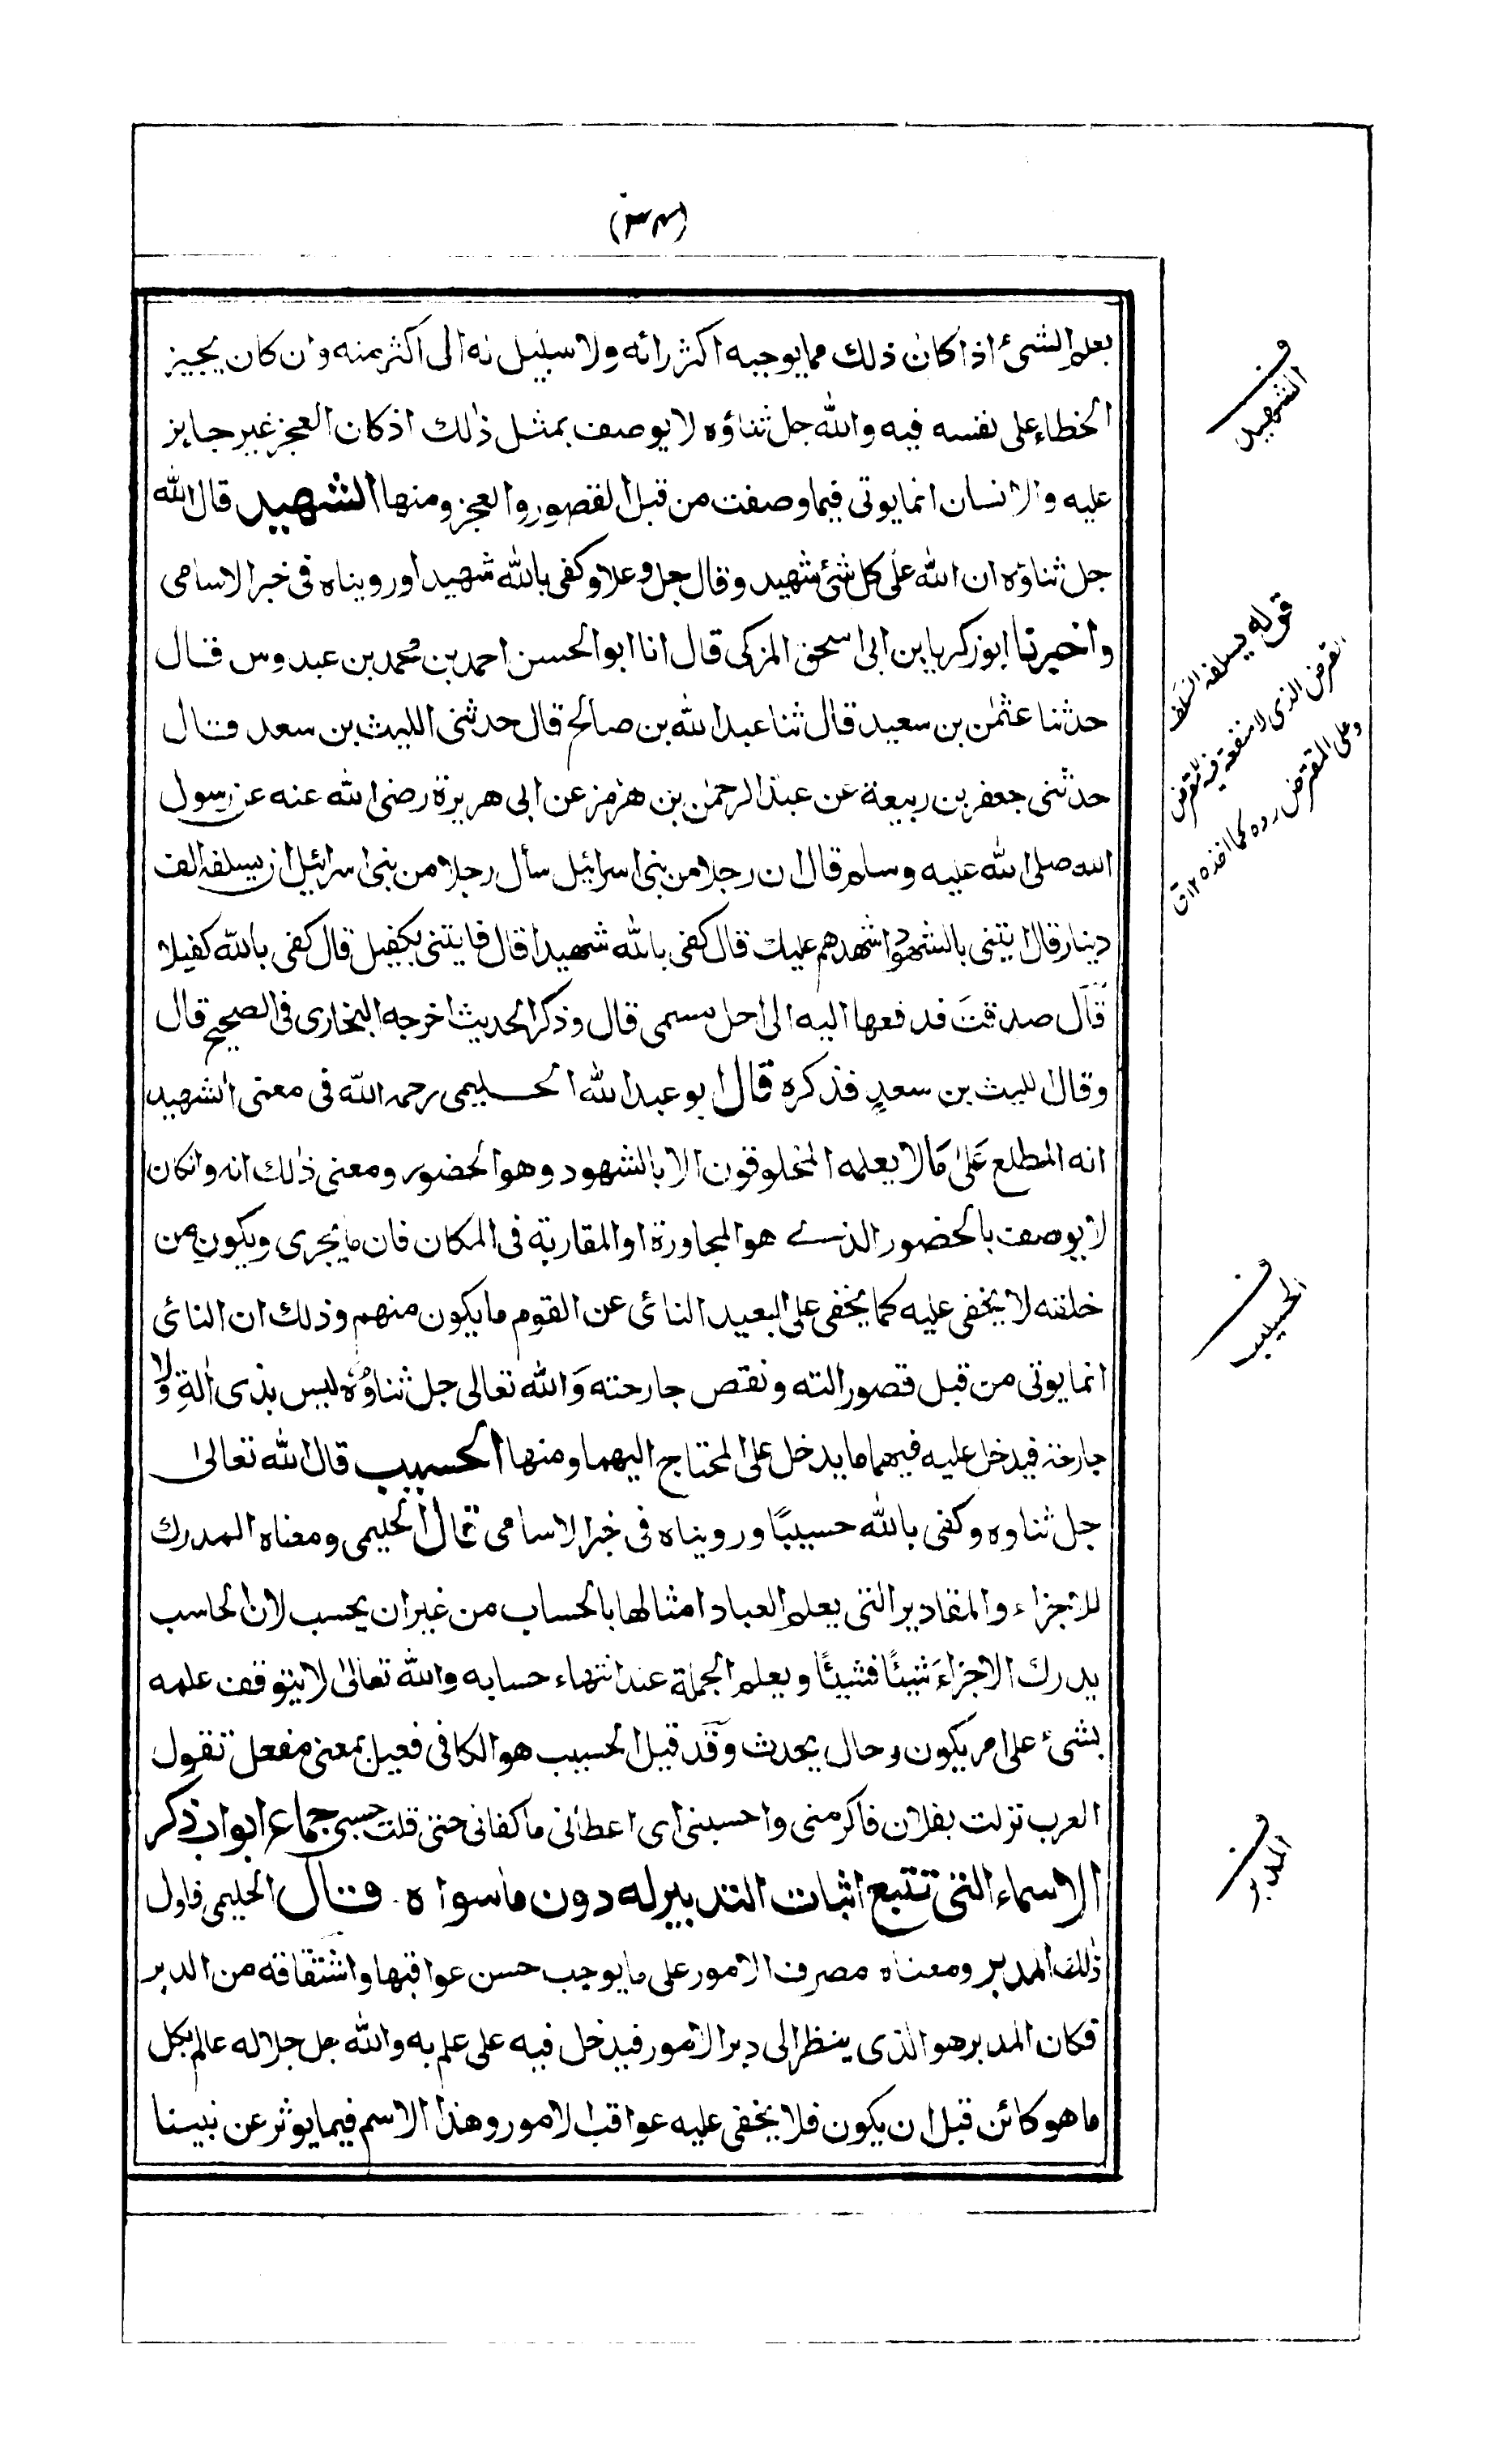 يعلم الشئ اذا كان ذلك مما يوجبه اكثر رائه ولا سبيل له الى اكثر منه وان كان يجيز
الخطاء على نفسه فيه والله جل ثناؤه لا يوصف بمثل ذلك اذ كان العجز غير جايز
عليه والانسان انما يوتى فيما وصفت من قبل القصور والعجز ومنها الشهيد قال الله
جل ثناؤه ان الله على كل شئ شهيد وقال جل وعلا وكفى بالله شهيدا ورويناه فى خبر الاسامى
واخبرنا ابو زكريا بن ابى اسحق المزكى قال انا ابو الحسن احمد بن محمد بن عبدوس قال
حدثنا عثمن بن سعيد قال ثنا عبد الله بن صالح قال حدثنى الليث بن سعد قال
حدثنى جعفر بن ربيعة عن عبد الرحمن بن هرمز عن ابى هريرة رضى الله عنه عن رسول
الله صلى الله عليه وسلم قال ان رجلا من بنى اسرائيل سأل رجلا من بنى اسرائيل ان يسلفه الف
دينار قال ايتنى بالشهود اشهدهم عليك قال كفى بالله شهيدا قال فايتنى بكفيل قال كفى بالله كفيلا
قال صدقت فدفعها اليه الى اجل مسمى قال وذكر الحديث اخرجه البخارى فى الصحيح قال
وقال الليث بن سعد فذكره قال ابو عبد الله الحليمى رحمه الله فى معنى الشهيد
انه المطلع على ما لا يعلمه المخلوقون الا بالشهود وهو الحضور ومعنى ذلك انه وان كان
لا يوصف بالحضور الذے هو المجاورة او المقاربة فى المكان فان ما يجرى ويكون من
خلقه لا يخفى عليه كما يخفى على البعيد النائى عن القوم ما يكون منهم وذلك ان النائى
انما يوتى من قبل قصور الته ونقص جارحته والله تعالى جل ثناؤه ليس بذى الة ولا
جارحة فيدخل عليه فيهما ما يدخل على المحتاج اليهما ومنها الحسيب قال الله تعالى
جل ثناوه وكفى بالله حسيبا ورويناه فى خبر الاسامى قال الحليمى ومعناه المدرك
للاجزاء والمقادير التى يعلم العباد امثالها بالحساب من غير ان يحسب لان الحاسب
يدرك الاجزاء شيئا فشيئا ويعلم الجملة عند انتهاء حسابه والله تعالى لا يتوقف علمه
بشئ على امر يكون وحال يحدث وقد قيل الحسيب هو الكافى فعيل بمعنى مفعل تقول
العرب نزلت بفلان فاكرمنى واحسبنى اى اعطانى ما كفانى حتى قلت حسبى جماع ابواب ذكر
الاسماء التى تتبع اثبات التدبير له دون ما سواه۔ قال الحليمى فاول
ذلك المدبر ومعناه مصرف الامور على ما يوجب حسن عواقبها واشتقاقه من الدبر
فكان المدبر هو الذى ينظر الى دبر الامور فيدخل فيه على علم به والله جل جلاله عالم بكل
ما هو كائن قبل ان يكون فلا يخفى عليه عواقب الامور وهذا الاسم فيما يوثر عن نبينا
ف
الشهيد
قوله يسلفه السلف
القرض الذى لا منفعة فيه للمقرض
وعلى المقترض رده كما اخذه ١٢ ق
ف
الحسيب
ف
المدبر